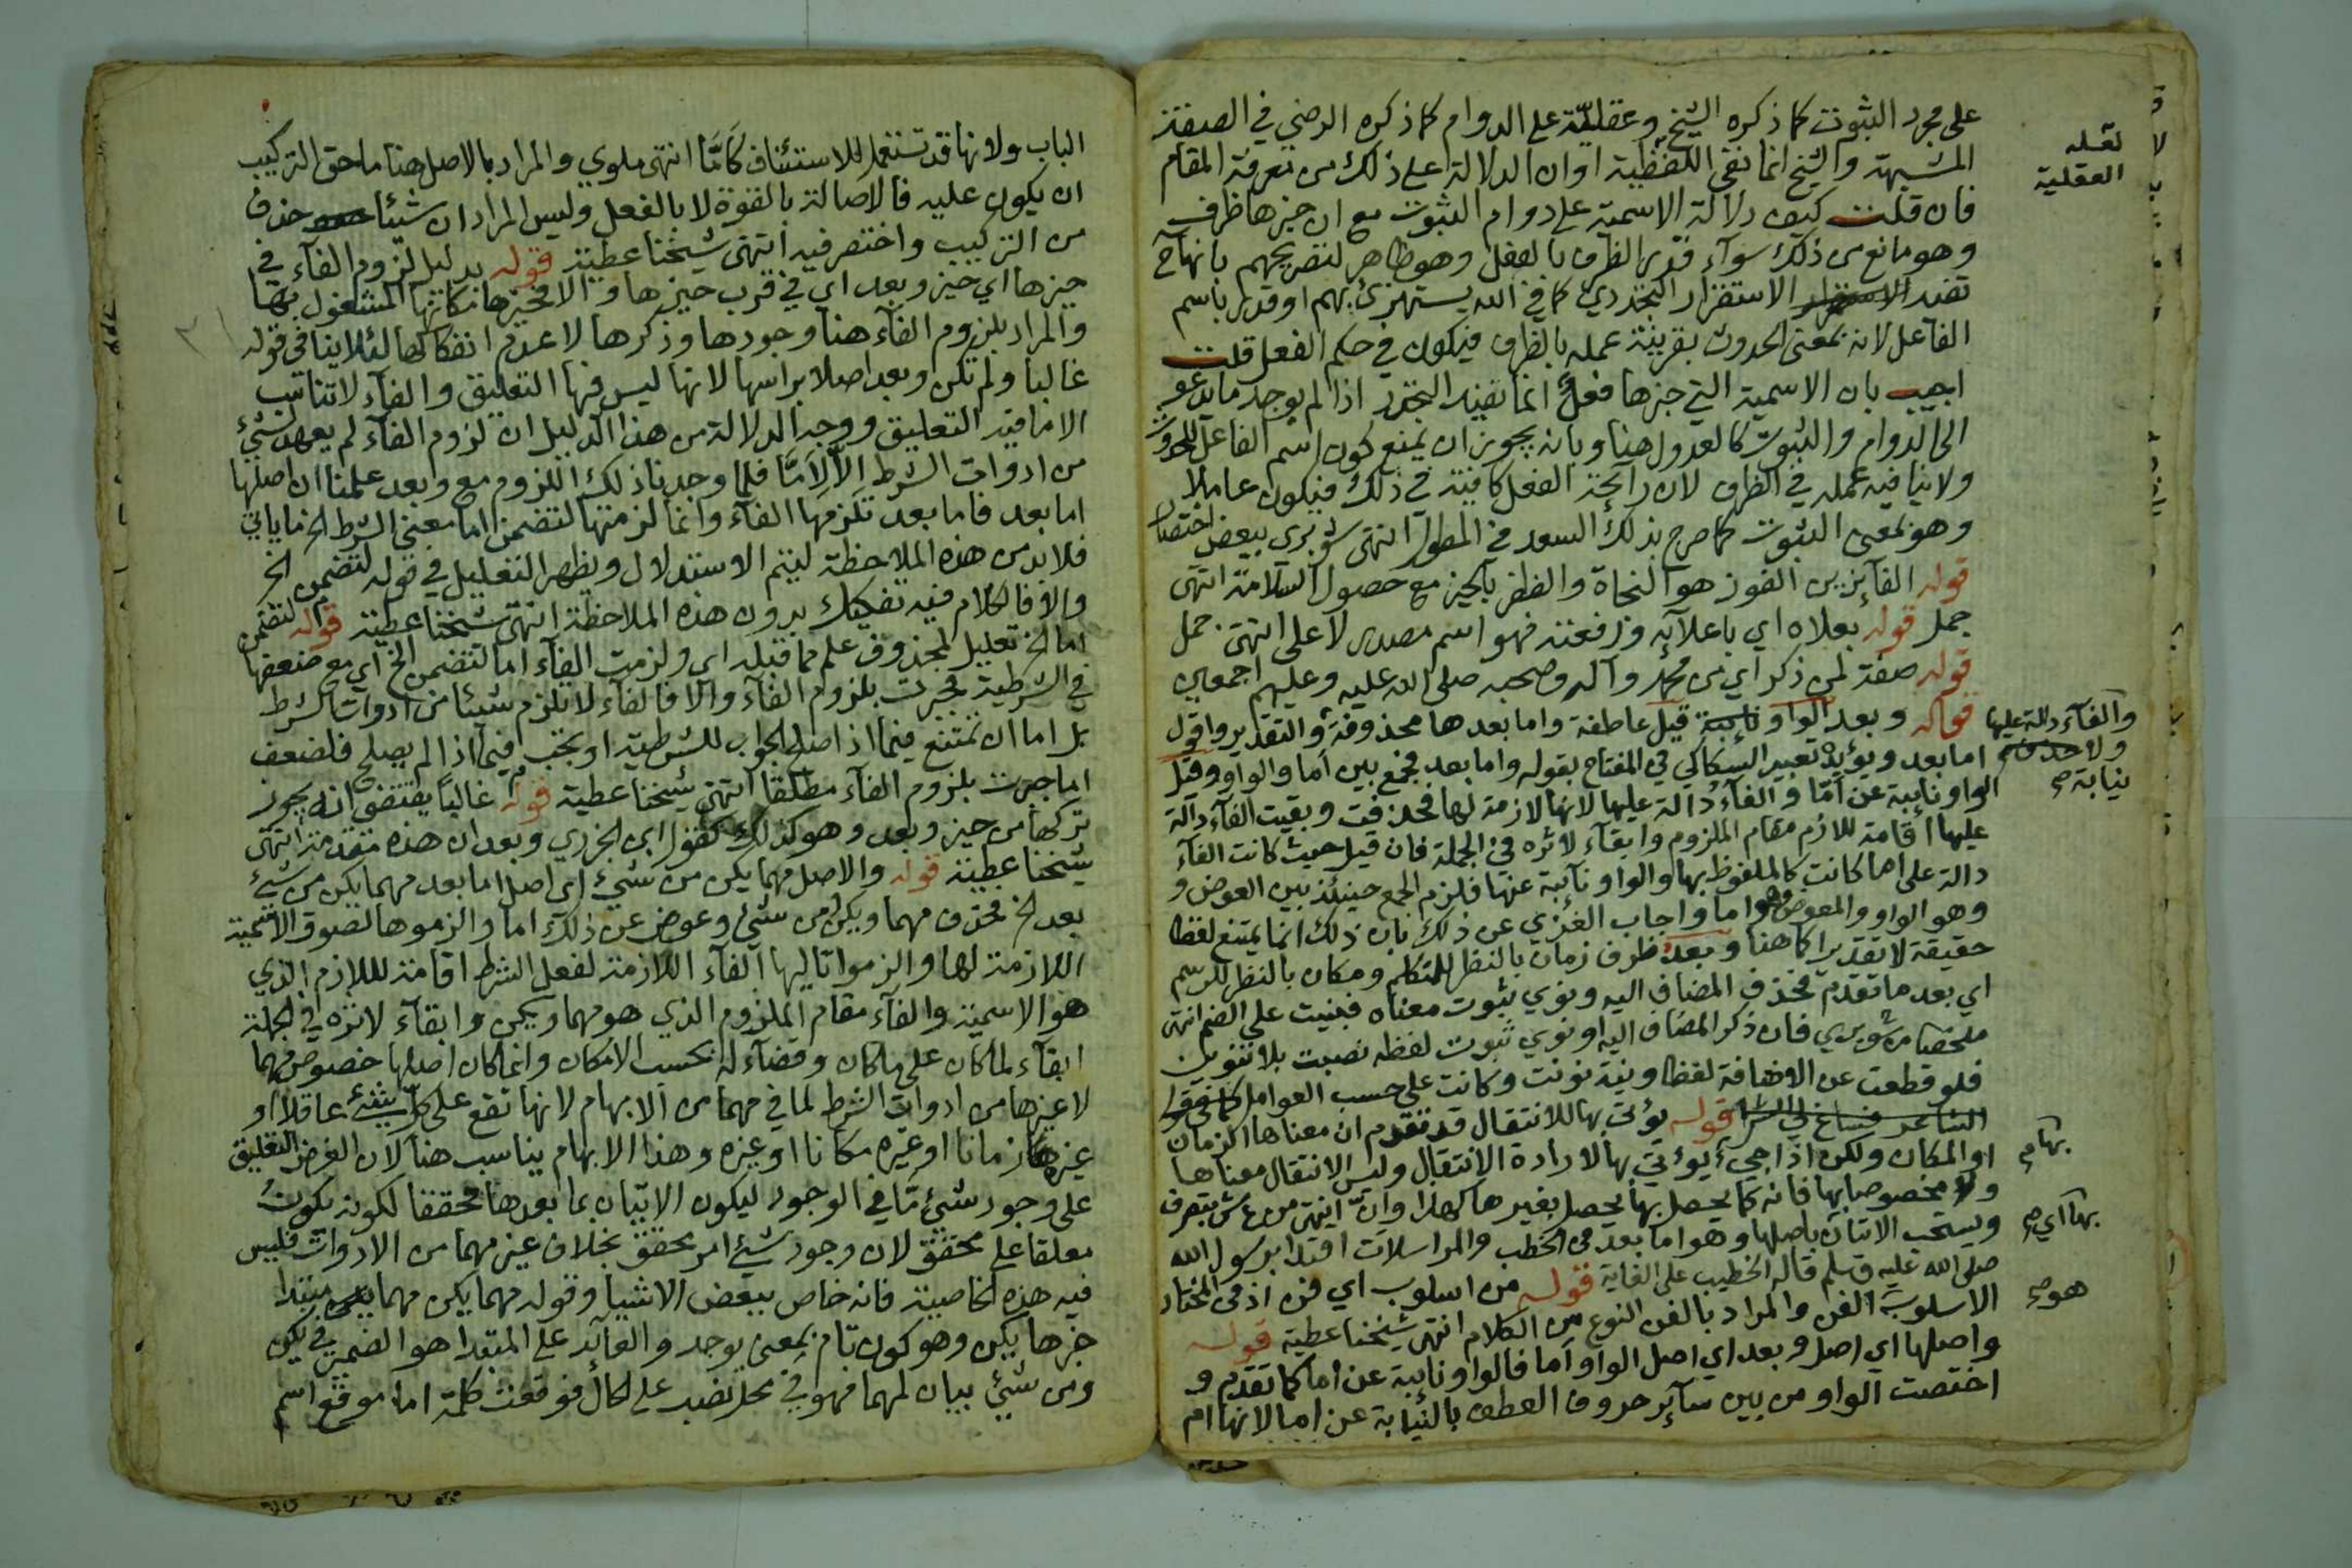 على مجرد الثبوت كما ذكره الشيخ وعقلية على الدوام كما ذكره الرضي في الصفة
لعله
العقلية
المشبهة والشيخ انما نفى اللفظية او ان الدلالة على ذلك من معرفة المقام
فان قلت كيف دلالة الاسمية على دوام الثبوت مع ان خبرها ظرف
وهو مانع من ذلك سوآء قدر الظرف بالفعل وهو ظاهر لتصريحهم بانها ح
تفيد الاستقرار التجددي كما في الله يستهزئ بهم او قدر باسم
الفاعل لانه بمعنى الحدوث بقرينة عمله بالظرف فيكون في حكم الفعل قلت
اجيب بان الاسمية التي خبرها فعل انما تفيد التجدد اذا لم يوجد ما يدعو
الى الدوام والثبوت كالعدول هنا وبانه يجوز ان يمنع كون اسم الفاعل للحدوث
ولا ينافيه عمله في الظرف لان رآئحة الفعل كافية في ذلك فيكون عاملا
وهو بمعنى الثبوت كما صرح بذلك السعد في المطول انتهى شوبري ببعض اختصار
قوله الفآئزين الفوز هو النجاة والظفر بالخير مع حصول السلامة انتهى
جمل قوله بعلاه اي باعلآئه ورفعته فهو اسم مصدر لاعلى انتهى جمل
قوله صفة لمن ذكر اي من محمد وآله وصحبه صلى الله عليه وعليهم اجمعين
قوله وبعد الواو نآئبة قيل عاطفة واما بعدها محذوفة والتقدير واقول
والفآء دالة عليها
ولا حذف
نيابة صح
اما بعد ويؤيده تعبير السكاكي في المفتاح بقوله واما بعد فجمع بين اما والواو وقيل
الواو نآئبة عن أمّا والفآء دالة عليها لانها لازمة لها فحذفت وبقيت الفآء دالة
عليها اقامة للازم مقام الملزوم وابقآء لاثره في الجملة فان قيل حيث كانت الفآء
دالة على اما كانت كالملفوظ بها والواو نآئبة عنها فلزم الجمع حينئذ بين العوض و
وهو الواو والمعوض وهو اما واجاب الغزي عن ذلك بان ذلك انما يمتنع لفظا
حقيقة لا تقديرا كما هنا وبعد ظرف زمان بالنظر للمتكلم ومكان بالنظر للرسم
اي بعد ما تقدم فحذف المضاف اليه ونوي ثبوت معناه فبنيت على الضم انتهى
ملخصا من شوبري فان ذكر المضاف اليه او نوي ثبوت لفظه نصبت بلا تنوين
فلو قطعت عن الاضافة لفظا ونية نونت وكانت على حسب العوامل كما في قول
الشاعر فساغ لي الشراب قوله يؤتى بها للانتقال قد تقدم ان معناها الزمان
بها م
او المكان ولكن اذا جيء يؤتي بها لارادة الانتقال وليس الانتقال معناها
ولا مخصوصا بها فانه كما يحصل بها يحصل بغيرها كهذا وانّ انتهى من ع ش بتصرف
بها اي صح
ويستحب الاتيان باصلها وهو اما بعد في الخطب والمراسلات اقتدا برسول الله
صلى الله عليه وسلم قاله الخطيب على الغاية قوله من اسلوب اي فن اذ في المختار
هو صح
الاسلوب الفن والمراد بالفن النوع من الكلام انتهى شيخنا عطية قوله
واصلها اي اصل وبعد اي اصل الواو أما فالواو نآئبة عن أما كما تقدم و
اختصت الواو من بين سآئر حروف العطف بالنيابة عن اما لانها ام
الباب ولانها قد تستعمل للاستئناف كأمّا انتهى ملوي والمراد بالاصل هنا ما حق التركيب
ان يكون عليه فالاصالة بالقوة لا بالفعل وليس المراد ان شيئا حذف
من التركيب واختصر فيه انتهى شيخنا عطية قوله بدليل لزوم الفآء في
حيزها اي حيز وبعد اي في قرب حيزها والا فحيزها مكانها المشغول بها
والمراد بلزوم الفآء هنا وجودها وذكرها لا عدم انفكاكها لئلا ينافي قوله
غالبا ولم تكن وبعد اصلا براسها لانها ليس فيها التعليق والفآء لا تناسب
الا ما فيه التعليق ووجه الدلالة من هذا الدليل ان لزوم الفآء لم يعهد لشيئ
من ادوات الشرط الّا لِأَمّا فلما وجدنا ذلك اللزوم مع وبعد علمنا ان اصلها
اما بعد فاما بعد تلزمها الفآء وانما لزمتها لتضمن اما معنى الشرط الخ ما ياتي
فلا بد من هذه الملاحظة ليتم الاستدلال ويظهر التعليل في قوله لتضمن الخ
والا فالكلام فيه تفكيك بدون هذه الملاحظة انتهى شيخنا عطية قوله لتضمن
اما الخ تعليل لمحذوف علم مما قبله اي ولزمت الفآء اما لتضمن الخ اي مع ضعفها
في الشرطية فجبرت بلزوم الفآء والا فالفآء لا تلزم شيئا من ادوات الشرط
بل اما ان تمتنع فيما اذا صلح الجواب للشرطية او تجب فيما اذا لم يصلح فلضعف
اما جبرت بلزوم الفآء مطلقا انتهى شيخنا عطية قوله غالبًا يقتضي انه يجوز
تركها من حيز وبعد وهو كذلك كقول ابن الجزري وبعد ان هذه مقدمة انتهى
شيخنا عطية قوله والاصل مهما يكن من شيئ اي اصل اما بعد مهما يكن من شيئ
بعد الخ فحذف مهما ويكن من شيئ وعوض عن ذلك اما والزموها لصوق الاسمية
اللازمة لها والزموا تاليها الفآء اللازمة لفعل الشرط اقامة لللازم الذي
هو الاسمية والفآء مقام الملزوم الذي هو مهما ويكن وابقآء لاثره في الجملة
ابقآء لما كان على ما كان وقضآء له بحسب الامكان وانما كان اصلها خصوص مهما
لا غيرها من ادوات الشرط لما في مهما من الابهام لانها تقع على كل شيئ عاقلا او
غيره زمانا او غيره مكانا او غيره وهذا الابهام يناسب هنا لان الغرض التعليق
على وجود شيئ مّا في الوجود ليكون الاتيان بما بعدها محققا لكونه يكون
معلقا على محقق لان وجود شيئ امر محقق بخلاف غير مهما من الادوات فليس
فيه هذه الخاصية فانه خاص ببعض الاشيا وقوله مهما يكن مهما مبتدا
خبرها يكن وهو كون تام بمعنى يوجد والعآئد على المبتدا هو الضمير في يكن
ومن شيئ بيان لمهما فهو في محل نصب على الحال فوقعت كلمة اما موقع اسم